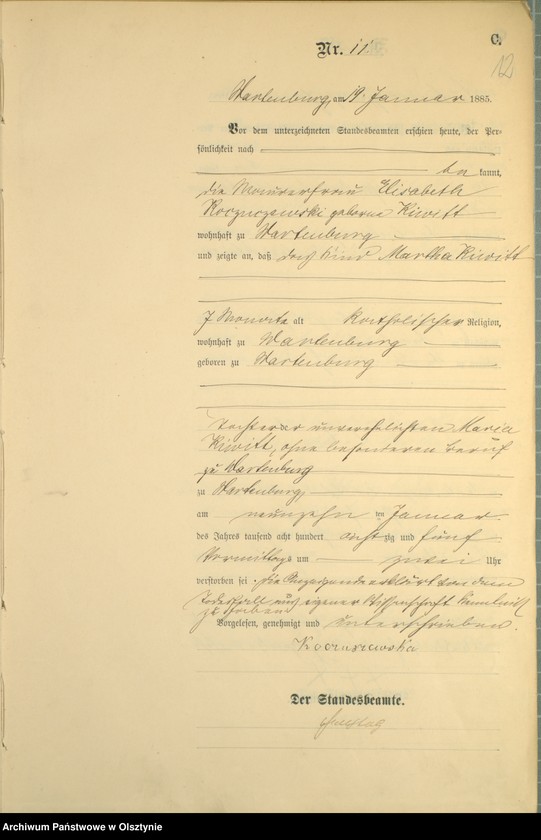 C.
12
Nr. 11
Wartenburg, am 19. Januar 1885.
Vor dem unterzeichneten Standesbeamten erschien heute, der Per-
sönlichkeit nach
be kannt,
die Maurerfrau Elisabeth
Koczuczewski geborne Kiwitt
wohnhaft zu Wartenburg
und zeigte an, daß das Kind Martha Kiwitt
7 Monate alt katholischer Religion,
wohnhaft zu Wartenburg
geboren zu Wartenburg
Tochter der unverehelichten Maria
Kiwitt, ohne besonderen Beruf
zu Wartenburg
zu Wartenburg,
am neunzehn ten Januar
des Jahres tausend acht hundert acht zig und fünf
Vormittags um zwei Uhr
verstorben sei. Die Anzeigende erklärt von dem
Todesfall aus eigener Wissenschaft Kenntniß
zu haben
Vorgelesen, genehmigt und unterschrieben.
Koczuszewska
Der Standesbeamte.
Archiwum Państwowe w Olsztynie